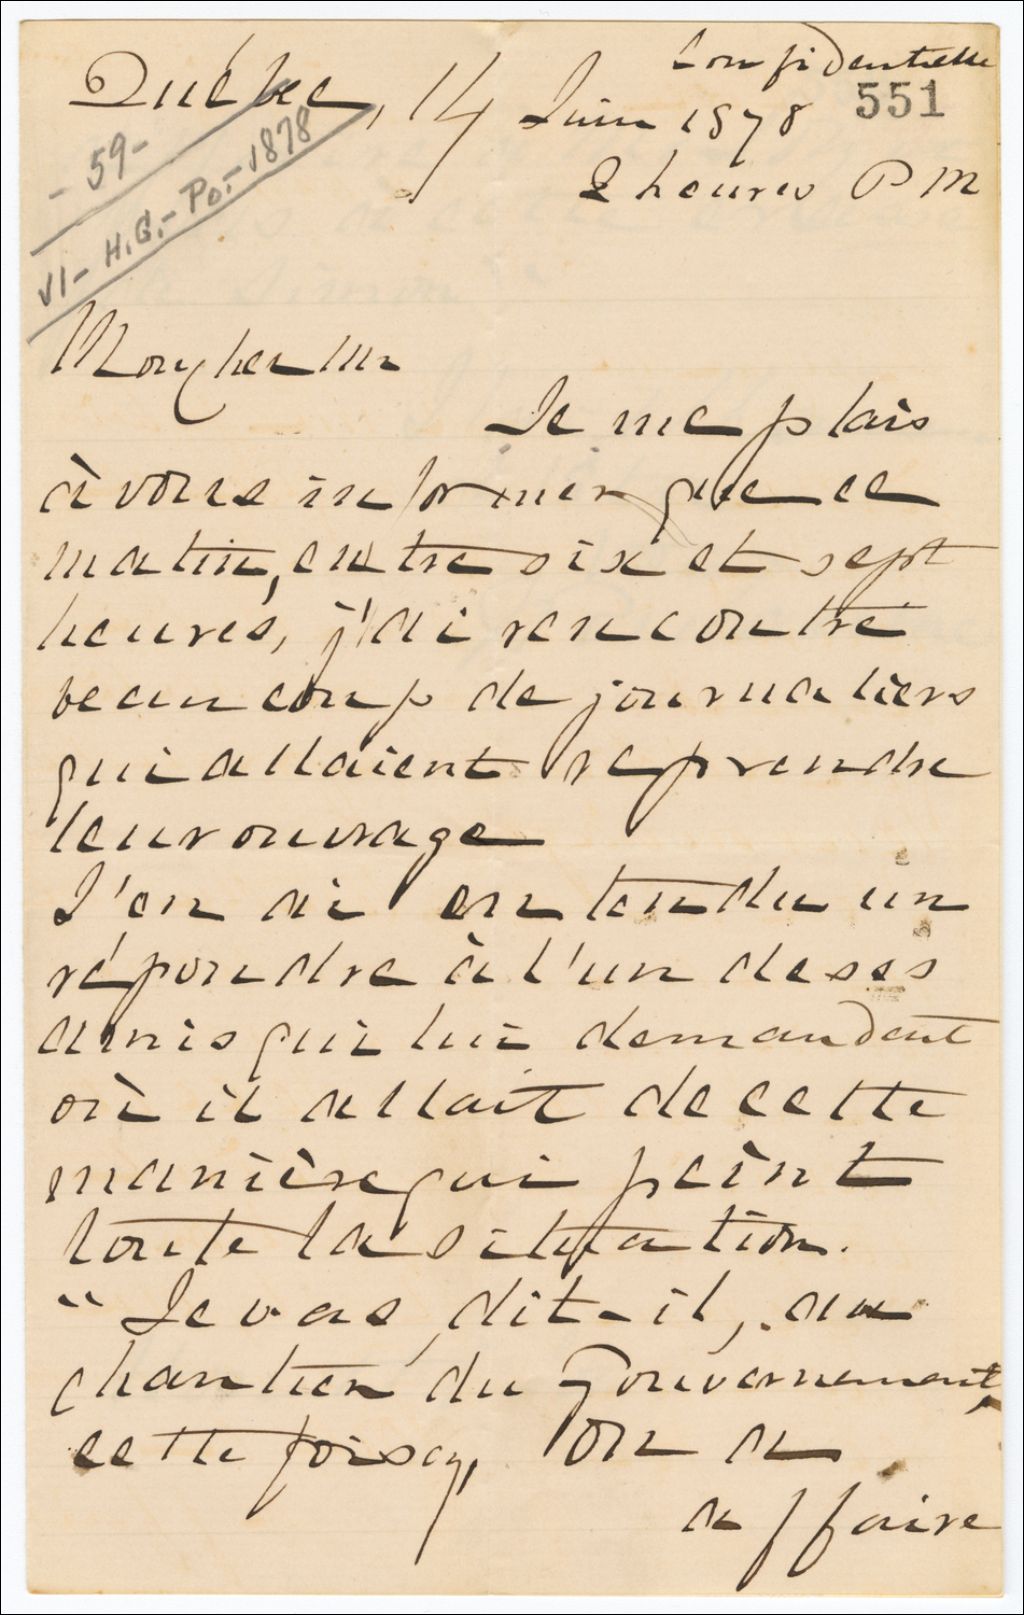 Confidentielle
Québec, 14 Juin 1878 551
2 heures P M
- 59 -
VI - H.G. - Po. - 1878
Mon cher Mr
Je me plais
à vous informer que ce
matin, entre six et sept
heures, j'ai rencontré
beaucoup de journaliers
qui allaient reprendre
leur ouvrage
J'en ai entendu un
répondre à l'un de ses
amis qui lui demandent
où il allait de cette
manière qui peint
toute la situation.
" Je vas, dit-il, au
chantier du Gouvernement,
cette fois cy, on a
affaire